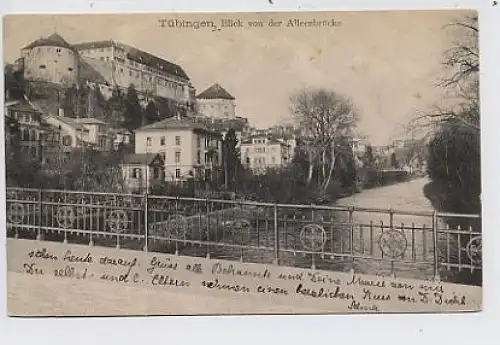 Tübingen, Blick von der Alleenbrücke
schon heute darauf. Gruss alle Bekannte und Deine Marie von mir
Du selbst und l. Eltern nehmen einen herzlichen Kuss von D. Dich l.